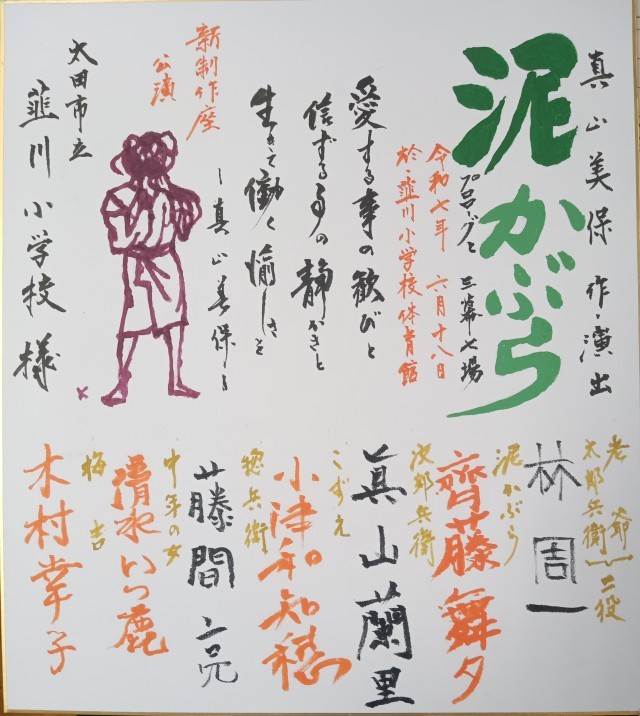 真山美保 作・演出
泥かぶら
プロローグと 三幕七場
令和七年 六月十八日
於・韮川小学校体育館
愛する事の歓びと
信ずるの静かさと
生きて働く愉しさを
〜真山美保〜
新制作座
公演
太田市立
韮川小学校様
老爺
太郎兵衛
二役
林 周一
泥かぶら
齊藤舞夕
次郎兵衛
真山蘭里
こずえ
小津和知穂
惣兵衛
藤間 亮
中年の女
清水いつ鹿
梅吉
木村幸子